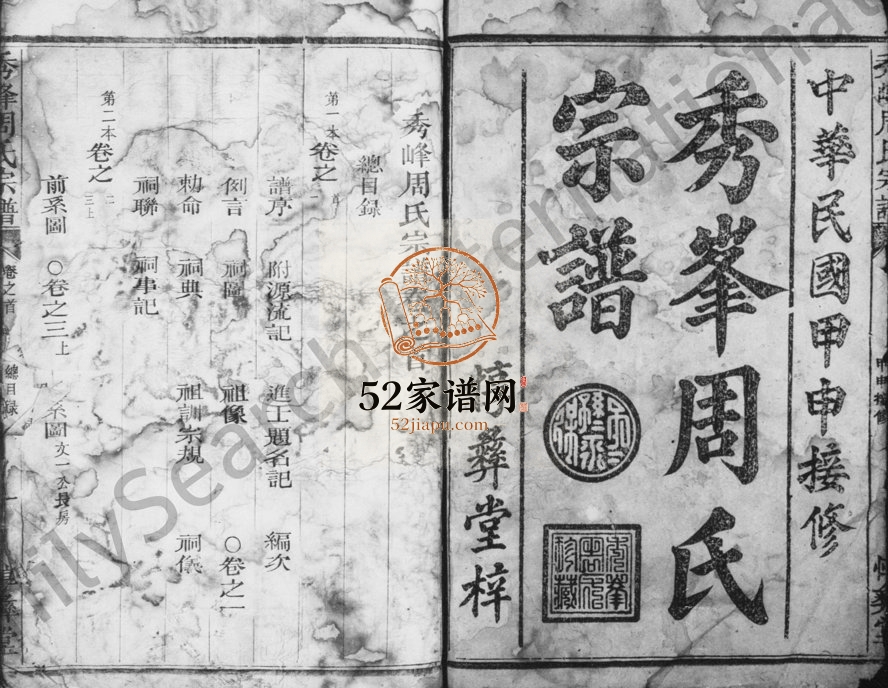 中華民國甲申接修
秀峯周氏
宗譜
彝堂梓
秀峰周氏宗
總目録
第一本 卷之
譜序 附源流記 進士題名記 編次
例言 祠圖 祖像 ○卷之一
勅命 祠典 祖訓宗規 祠儀
祠聯 祠事記
第二本 卷之二 三上
前系圖 ○卷之三上 系圖文一公長房
秀峰周氏宗譜 卷之首 總目録
52家谱网
52jiapu.com
ilySearch International